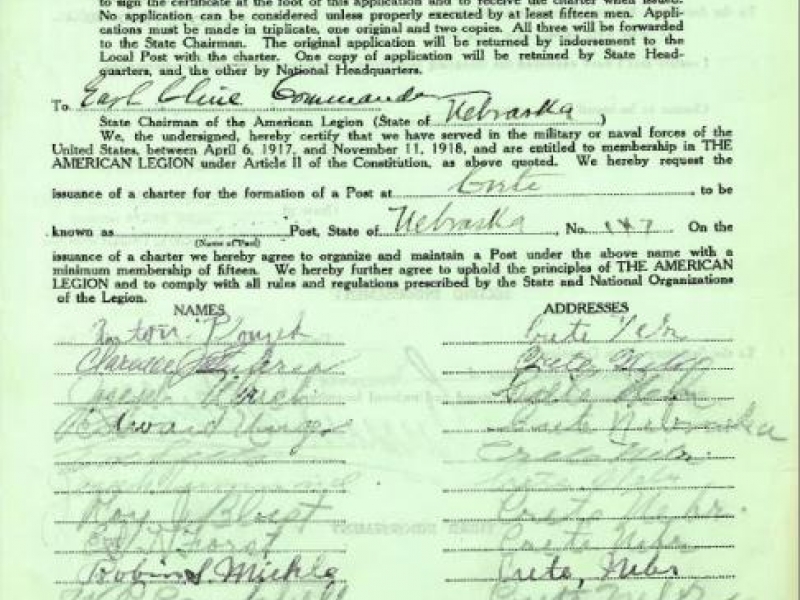 to sign the certificate at the foot of this application and to receive the charter when issued.
No application can be considered unless properly executed by at least fifteen men. Appli-
cations must be made in triplicate, one original and two copies. All three will be forwarded
to the State Chairman. The original application will be returned by indorsement to the
Local Post with the charter. One copy of application will be retained by State Head-
quarters, and the other by National Headquarters.
To Earl Cline Commander
State Chairman of the American Legion (State of Nebraska)
We, the undersigned, hereby certify that we have served in the military or naval forces of the
United States, between April 6, 1917, and November 11, 1918, and are entitled to membership in THE
AMERICAN LEGION under Article II of the Constitution, as above quoted. We hereby request the
issuance of a charter for the formation of a Post at Crete to be
known as Post, State of Nebraska, No. 147 On the
(Name of Post)
issuance of a charter we hereby agree to organize and maintain a Post under the above name with a
minimum membership of fifteen. We hereby further agree to uphold the principles of THE AMERICAN
LEGION and to comply with all rules and regulations prescribed by the State and National Organizations
of the Legion.
NAMES ADDRESSES
Anton Crete Nebr
Clarence Crete Nebr
Joseph Crete Nebr
Edward Crete Nebraska
Crete Nebr.
Roy Crete Nebr.
Crete Nebr
Robin S. Mickle Crete, Nebr